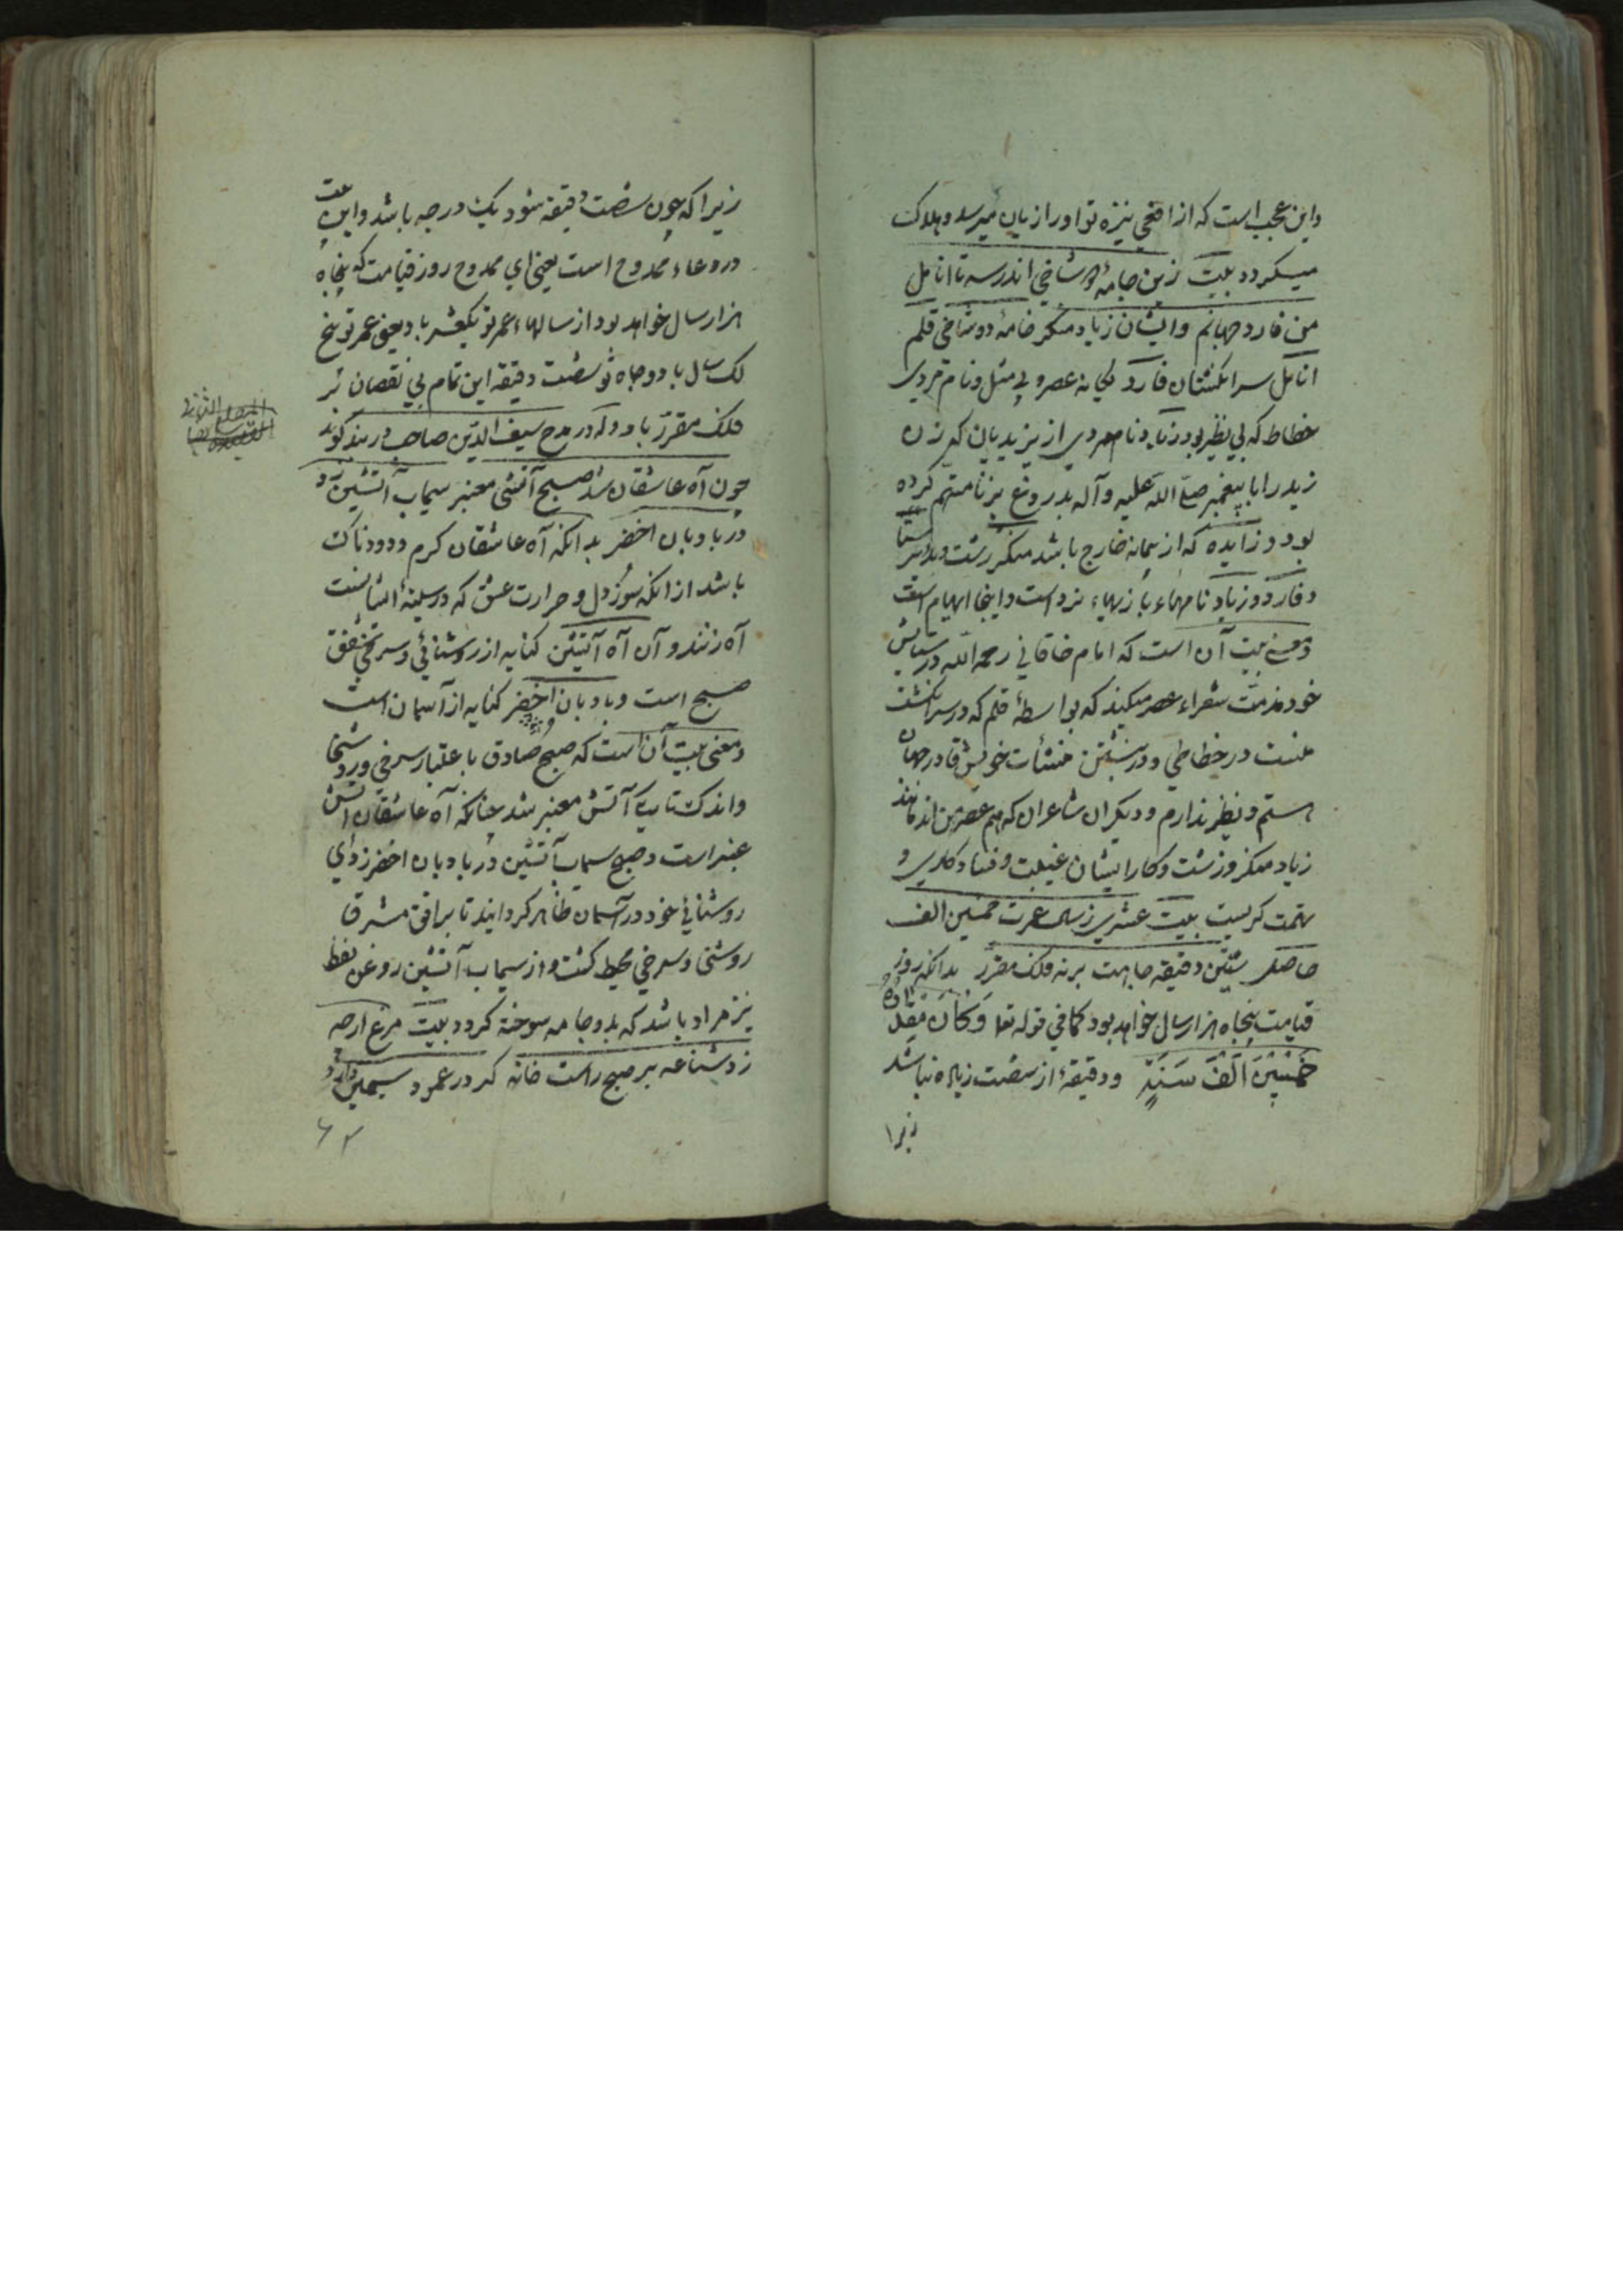 واین عجب است که از افعی نیزه تو اورا زیان میرسد و هلاک
میکردد بیت زین خامه دو شاخی اندر سه تا انامل
من فارد جهانم وایشان زیاد منکر خامهٔ دوشاخی قلم
انامل سر انکشتان فارد یکانهٔ عصر و بی مثل و نام مردی
خطاط که بی نظیر بود زیاد نام مردی از یزیدیان که زن
زید را با پیغمبر صلی الله علیه وآله بدروغ بزنا متهم کرده
بود و زایده که از پیمانه خارج باشد منکر زشت و
و فارد و زیاد نامهاء بازیهاء نرد است و اینجا ایهام است
و معنی بیت آن است که امام خاقانی رحمه الله در ستایش
خود مذمت شعراء عصر میکند که بواسطهٔ قلم که در سر انکشت
منست در خطاطی و در نبشتن منشآت خویش فارد جهان
هستم و نظیر ندارم و دیکران شاعران که هم عصر من اند مانند
زیاد منکر و زشت و کار ایشان غیبت و فساد و
تهمت کریست بیت عشری ز سال عمرت خمسین الف
حاصل ستین دقیقه جاهت بر نه فلک مقرر بدانکه روز
قیامت پنجاه هزار سال خواهد بود کما فی قوله تعا وَکَانَ مِقْدَارُهُ
خَمْسِیْنَ اَلْفَ سَنَةٍ و دقیقه از شصت زیاده نباشد
زیرا
زیرا که چون شصت دقیقه شود یک درجه باشد واین بیت
در دعاء ممدوح است یعنی ای ممدوح روز قیامت که پنجاه
هزار سال خواهد بود از سالهاء عمر تو یکعشر باد یعنی عمر تو پنج
لک سال باد و جاه تو شصت دقیقه این تمام بی نقصان بر
فلک مقرر باد وله در مدح سیف الدین صاحب دربند کوید
چون آه عاشقان شد صبح آتشی معنبر سیماب آتشین زد
در بادبان اخضر بدانکه آه عاشقان کرم و دودناک
باشد از انکه سوز دل و حرارت عشق که در سینهٔ ایشانست
آه زنند و آن آه آتشین کنایه از روشنائی و سرخی شفق
صبح است و بادبان اخضر کنایه از آسمان است
و معنی بیت آن است که صبح صادق باعتبار سرخی و روشنی
واندک تاریک آتش معنبر شد چنانکه آه عاشقان آتش
عنبر است و صبح سیماب آتشین در بادبان اخضر زد ای
روشنائی خود در آسمان ظاهر کردانید تا بر افق مشرق
روشنی و سرخی محیط کشت و از سیماب آتشین روغن نفط
نیز مراد باشد که بدو جامه سوخته کردد بیت مرغ ارچه
زد شناعه بر صبح راست خانه کو در عمود سیمین دارد
۶۲